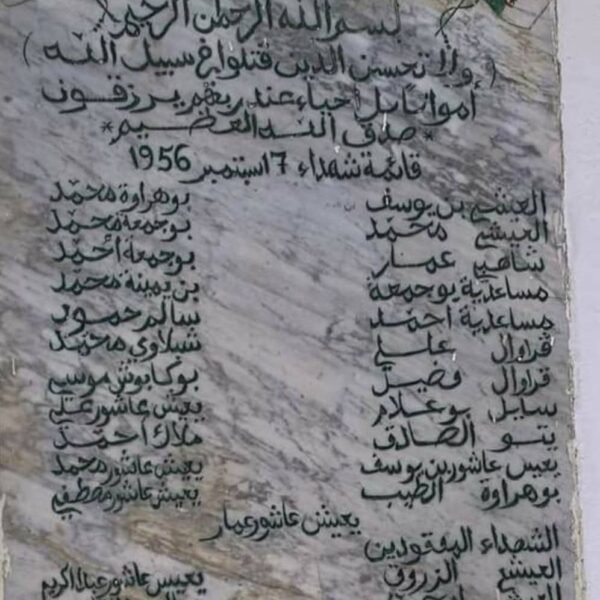 بسم الله الرحمن الرحيم
(ولا تحسبن الذين قتلوا في سبيل الله
أمواتا بل أحياء عند ربهم يرزقون)
*صدق الله العظيم*
قائمة شهداء 17 سبتمبر 1956
العيشي بن يوسف بوهراوة محمد
العيشي محمد بوجمعة محمد
شاهين عمار بوجمعة أحمد
مساعدية بوجمعة بن يمينة محمد
مساعدية أحمد سالم حمود
قراوال علي شبلاوي محمد
قراوال فضيل بوكابوش موسى
سايل بوغلام يعيش عاشور علي
يتو الصادق ملاك أحمد
يعيش عاشور بن يوسف يعيش عاشور محمد
بوهراوة الطيب يعيش عاشور مصطفى
يعيش عاشور عمار
الشهداء المفقودين
العيشي الزروق يعيش عاشور عبد الكريم
العيشي